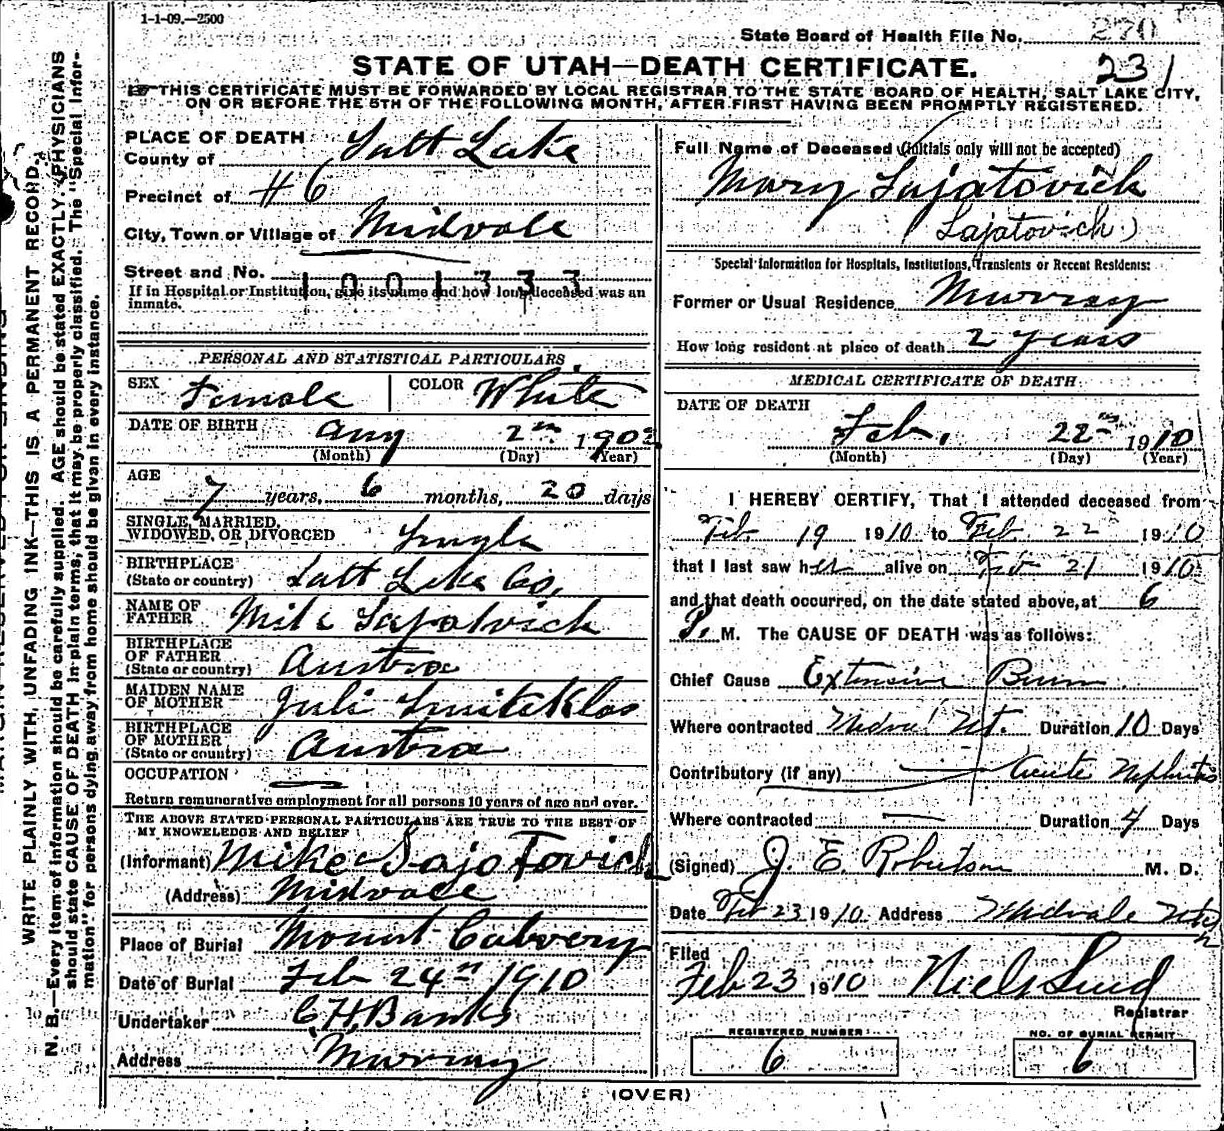 1-1-09.—2500
State Board of Health File No. 270
STATE OF UTAH—DEATH CERTIFICATE.
231
THIS CERTIFICATE MUST BE FORWARDED BY LOCAL REGISTRAR TO THE STATE BOARD OF HEALTH, SALT LAKE CITY,
ON OR BEFORE THE 5TH OF THE FOLLOWING MONTH, AFTER FIRST HAVING BEEN PROMPTLY REGISTERED.
WRITE PLAINLY WITH UNFADING INK—THIS IS A PERMANENT RECORD.
N. B.—Every item of information should be carefully supplied. AGE should be stated EXACTLY. PHYSICIANS
should state CAUSE OF DEATH in plain terms, that it may be properly classified. The "Special Infor-
mation" for persons dying away from home should be given in every instance.
PLACE OF DEATH
County of Salt Lake
Precinct of #6
City, Town or Village of Midvale
Street and No.
1001333
If in Hospital or Institution, give its name and how long deceased was an
inmate.
PERSONAL AND STATISTICAL PARTICULARS
SEX Female COLOR White
DATE OF BIRTH Aug 2nd 1902
(Month) (Day) (Year)
AGE
7 years, 6 months, 20 days
SINGLE, MARRIED,
WIDOWED, OR DIVORCED Single
BIRTHPLACE
(State or country) Salt Lake Co.
NAME OF
FATHER Mike Sajatovich
BIRTHPLACE
OF FATHER
(State or country) Austra
MAIDEN NAME
OF MOTHER Juli
BIRTHPLACE
OF MOTHER
(State or country) Austra
OCCUPATION
Return remunerative employment for all persons 10 years of age and over.
THE ABOVE STATED PERSONAL PARTICULARS ARE TRUE TO THE BEST OF
MY KNOWELEDGE AND BELIEF
(Informant) Mike Sajatovich
(Address) Midvale
Place of Burial Mount Calvery
Date of Burial Feb 24th 1910
Undertaker C. H. Banks
Address Murray
Full Name of Deceased (initials only will not be accepted)
Mary Sajatovich
(Sajatovich)
Special Information for Hospitals, Institutions, Transients or Recent Residents:
Former or Usual Residence Murray
How long resident at place of death 2 years
MEDICAL CERTIFICATE OF DEATH
DATE OF DEATH
Feb. 22nd 1910
(Month) (Day) (Year)
I HEREBY CERTIFY, That I attended deceased from
Feb 19 1910 to Feb 22 1910
that I last saw her alive on Feb 21 1910
and that death occurred, on the date stated above, at 6
P. M. The CAUSE OF DEATH was as follows:
Chief Cause Extensive Burn
Where contracted Midval Ut. Duration 10 Days
Contributory (if any) Acute Nephritis
Where contracted — Duration 4 Days
(Signed) J. E. Robertson M. D.
Date Feb 23 1910 Address Midvale Utah
Filed
Feb 23 1910 Niels Lind
Registrar
REGISTERED NUMBER
6
NO. OF BURIAL PERMIT
6
(OVER)